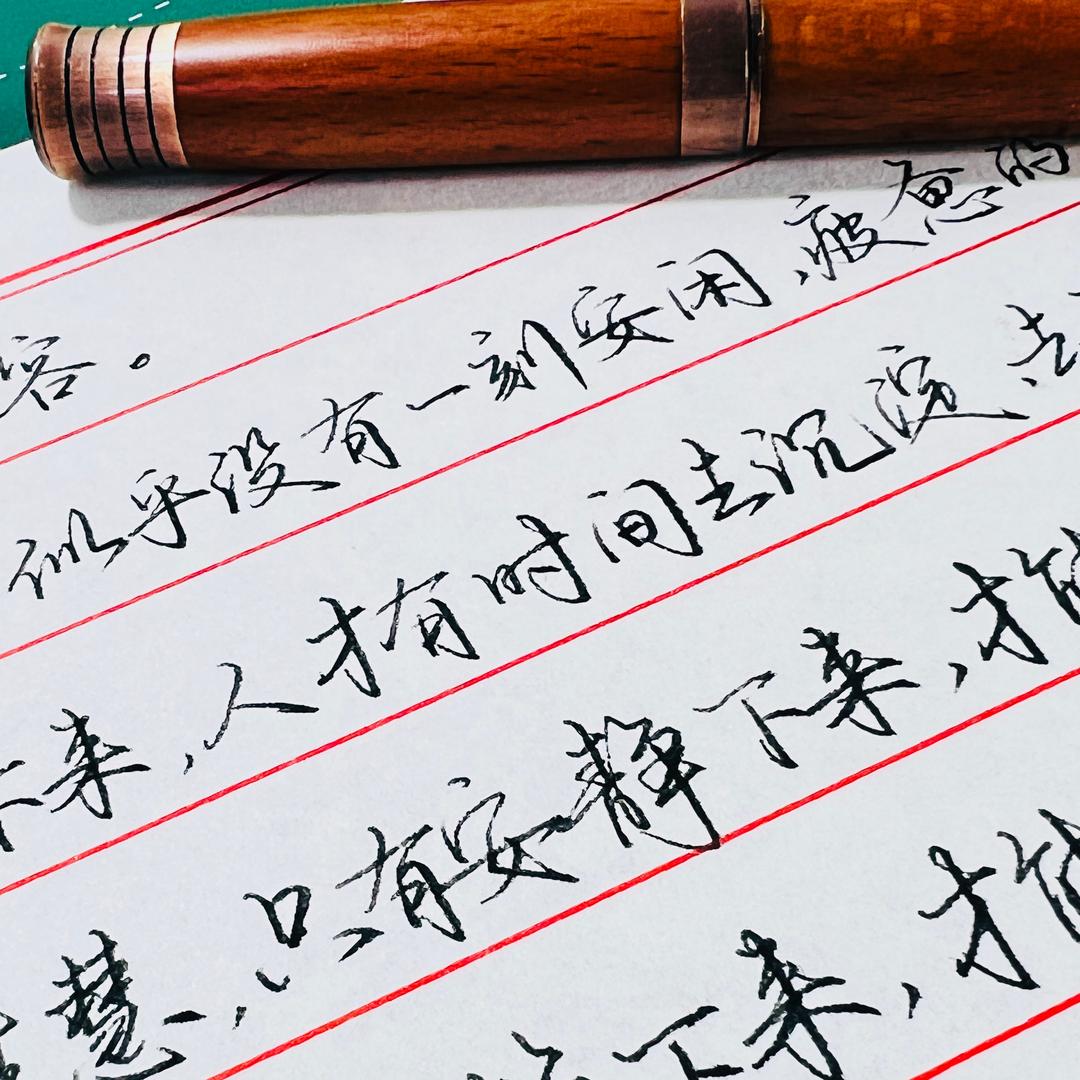 容。
似乎没有一刻安闲,疲惫的
下来,人才有时间去沉淀、去
慧,只有安静下来,才能
下来,才能